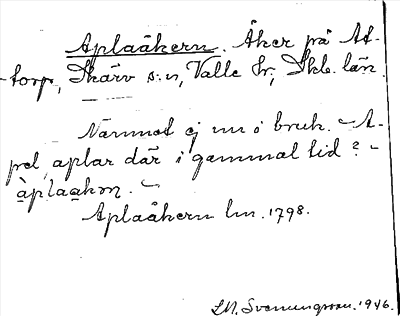 Aplaåkern. Åker på At-
torp, Skärv s:n, Valle hr, Skb. län.
Namnet ej nu i bruk. A-
pel, aplar där i gammal tid? -
àplaakɷn. ~
Aplaåkern lm. 1798.
LN. Svenungsson. 1946.